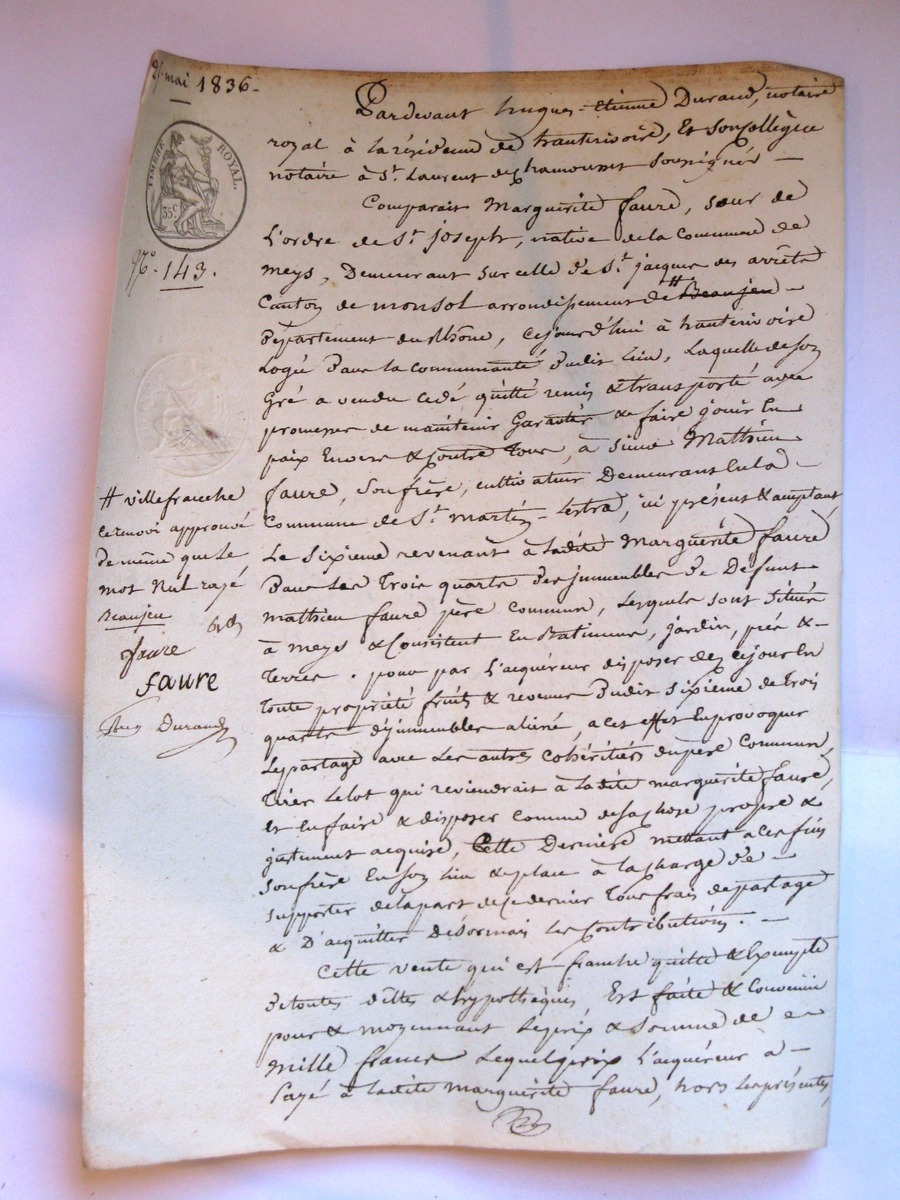 mai 1836.
TIMBRE ROYAL.
35c
N° 143.
Pardevant hugues-Etienne Durand, notaire
royal à la résidence de hauterivoire, et son Collègue
notaire à St. Laurent de Chamousset soussignés —
Comparait Marguerite faure, sœur de
L'ordre de St. joseph, native de la Commune de
meys, Demeurant sur celle de St. jacques des arrêts
Canton de monsol arrondissement de # Beaujeu —
Département du Rhône, Cejourd'hui à hauterivoire
Logée Dans la Communauté Dudit lieu, Laquelle de son
Gré a vendu cédé quitté remis & transporté avec
promesse de maintenir Garantir & faire jouir En
paix Envers & Contre Tous, à sieur Mathieu
faure, Son frère, cultivateur Demeurant En la —
Commune de St. martin-Lestra, ici présent & acceptant
Le Sixieme revenant à Ladite Marguerite faure
Dans Les Trois quarts Des immeubles De Defunt
mathieu faure père Commun, Lesquels sont Situés
à meys & Consistent En Batiments, jardin, prés &
Terres. pour par L'acquéreur disposer Dez cejour En
Toute propriété fruits & revenus Dudit Sixieme de Trois
quarts D'immeubles aliéné, a cet effet En provoquer
Le partage avec Les autres Cohéritiers Du père Commun,
Tirer Le lot qui reviendrait à Ladite marguerite faure,
Et En faire & disposer Comme de sa Chose propre &
justement acquise, Cette Dernière mettant a ces fins
Son frère En son lieu & place à la Charge De —
Supporter de la part de ce dernier Tous frais de partage
& D'acquitter Désormais Les Contributions. —
Cette vente qui est franche quitte & Exempte
De toutes dettes & hypothèques, Est faite & Convenue
pour & moyennant Le prix & Somme de
mille francs Lequel prix L'acquéreur a —
Payé à Ladite marguerite faure, hors Les présentes,
# villefranche
ce renvoi approuvé
De même que Le
mot Nul rayé
Beaujeu
faure
faure
Durand